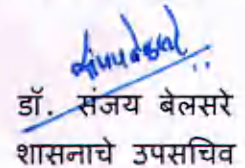 डॉ. संजय बेलसरे
शासनाचे उपसचिव